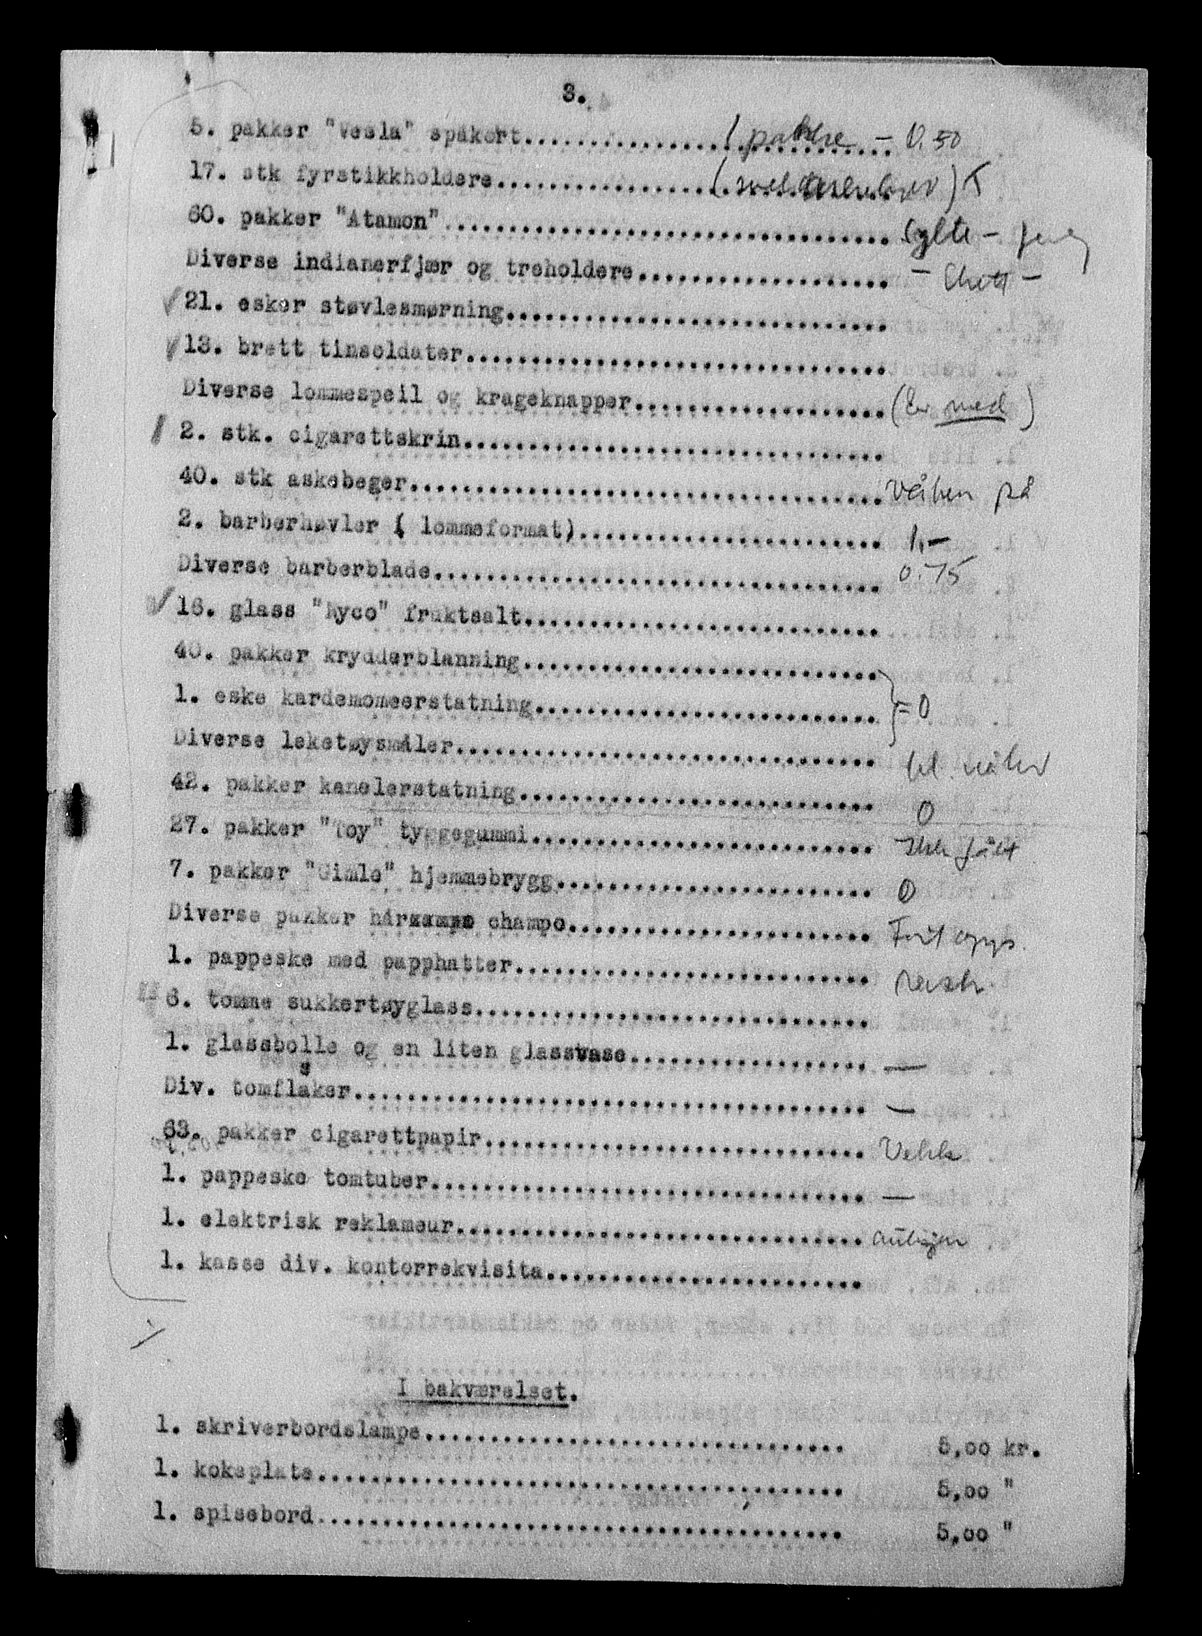 3.
5. pakker "Vesla" spåkort........................ pakke - 0.50
17. stk fyrstikkholdere........................
60. pakker "Atamon"........................ Sylte -
Diverse indianerfjær og treholdere........................
21. esker støvlesmørning........................
13. brett tinsoldater........................
Diverse lommespeil og krageknapper........................ (Er med)
2. stk. cigarettskrin........................
40. stk askebeger........................ Våben på
2. barberhøvler ( lommeformat)........................ 1,-
Diverse barberblade........................ 0.75
16. glass "Ryco" fruktsalt........................
40. pakker krydderblanning........................
1. eske kardemomeerstatning........................ = 0
Diverse leketøysmåler........................
42. pakker kanelerstatning........................ 0
27. pakker "Toy" tyggegummi........................
7. pakker "Gimle" hjemmebrygg........................ 0
Diverse pakker hår champo........................
1. pappeske med papphatter........................
6. tomme sukkertøyglass........................
1. glassbolle og en liten glassvase........................ —
Div. tomflasker........................ —
63. pakker cigarettpapir........................ Vekk
1. pappeske tomtuber........................ —
1. elektrisk reklameur........................
1. kasse div. kontorrekvisita........................
I bakværelset.
1. skriverbordslampe........................ 5,00 kr.
1. kokeplate........................ 5,00 "
1. spisebord........................ 5,00 "